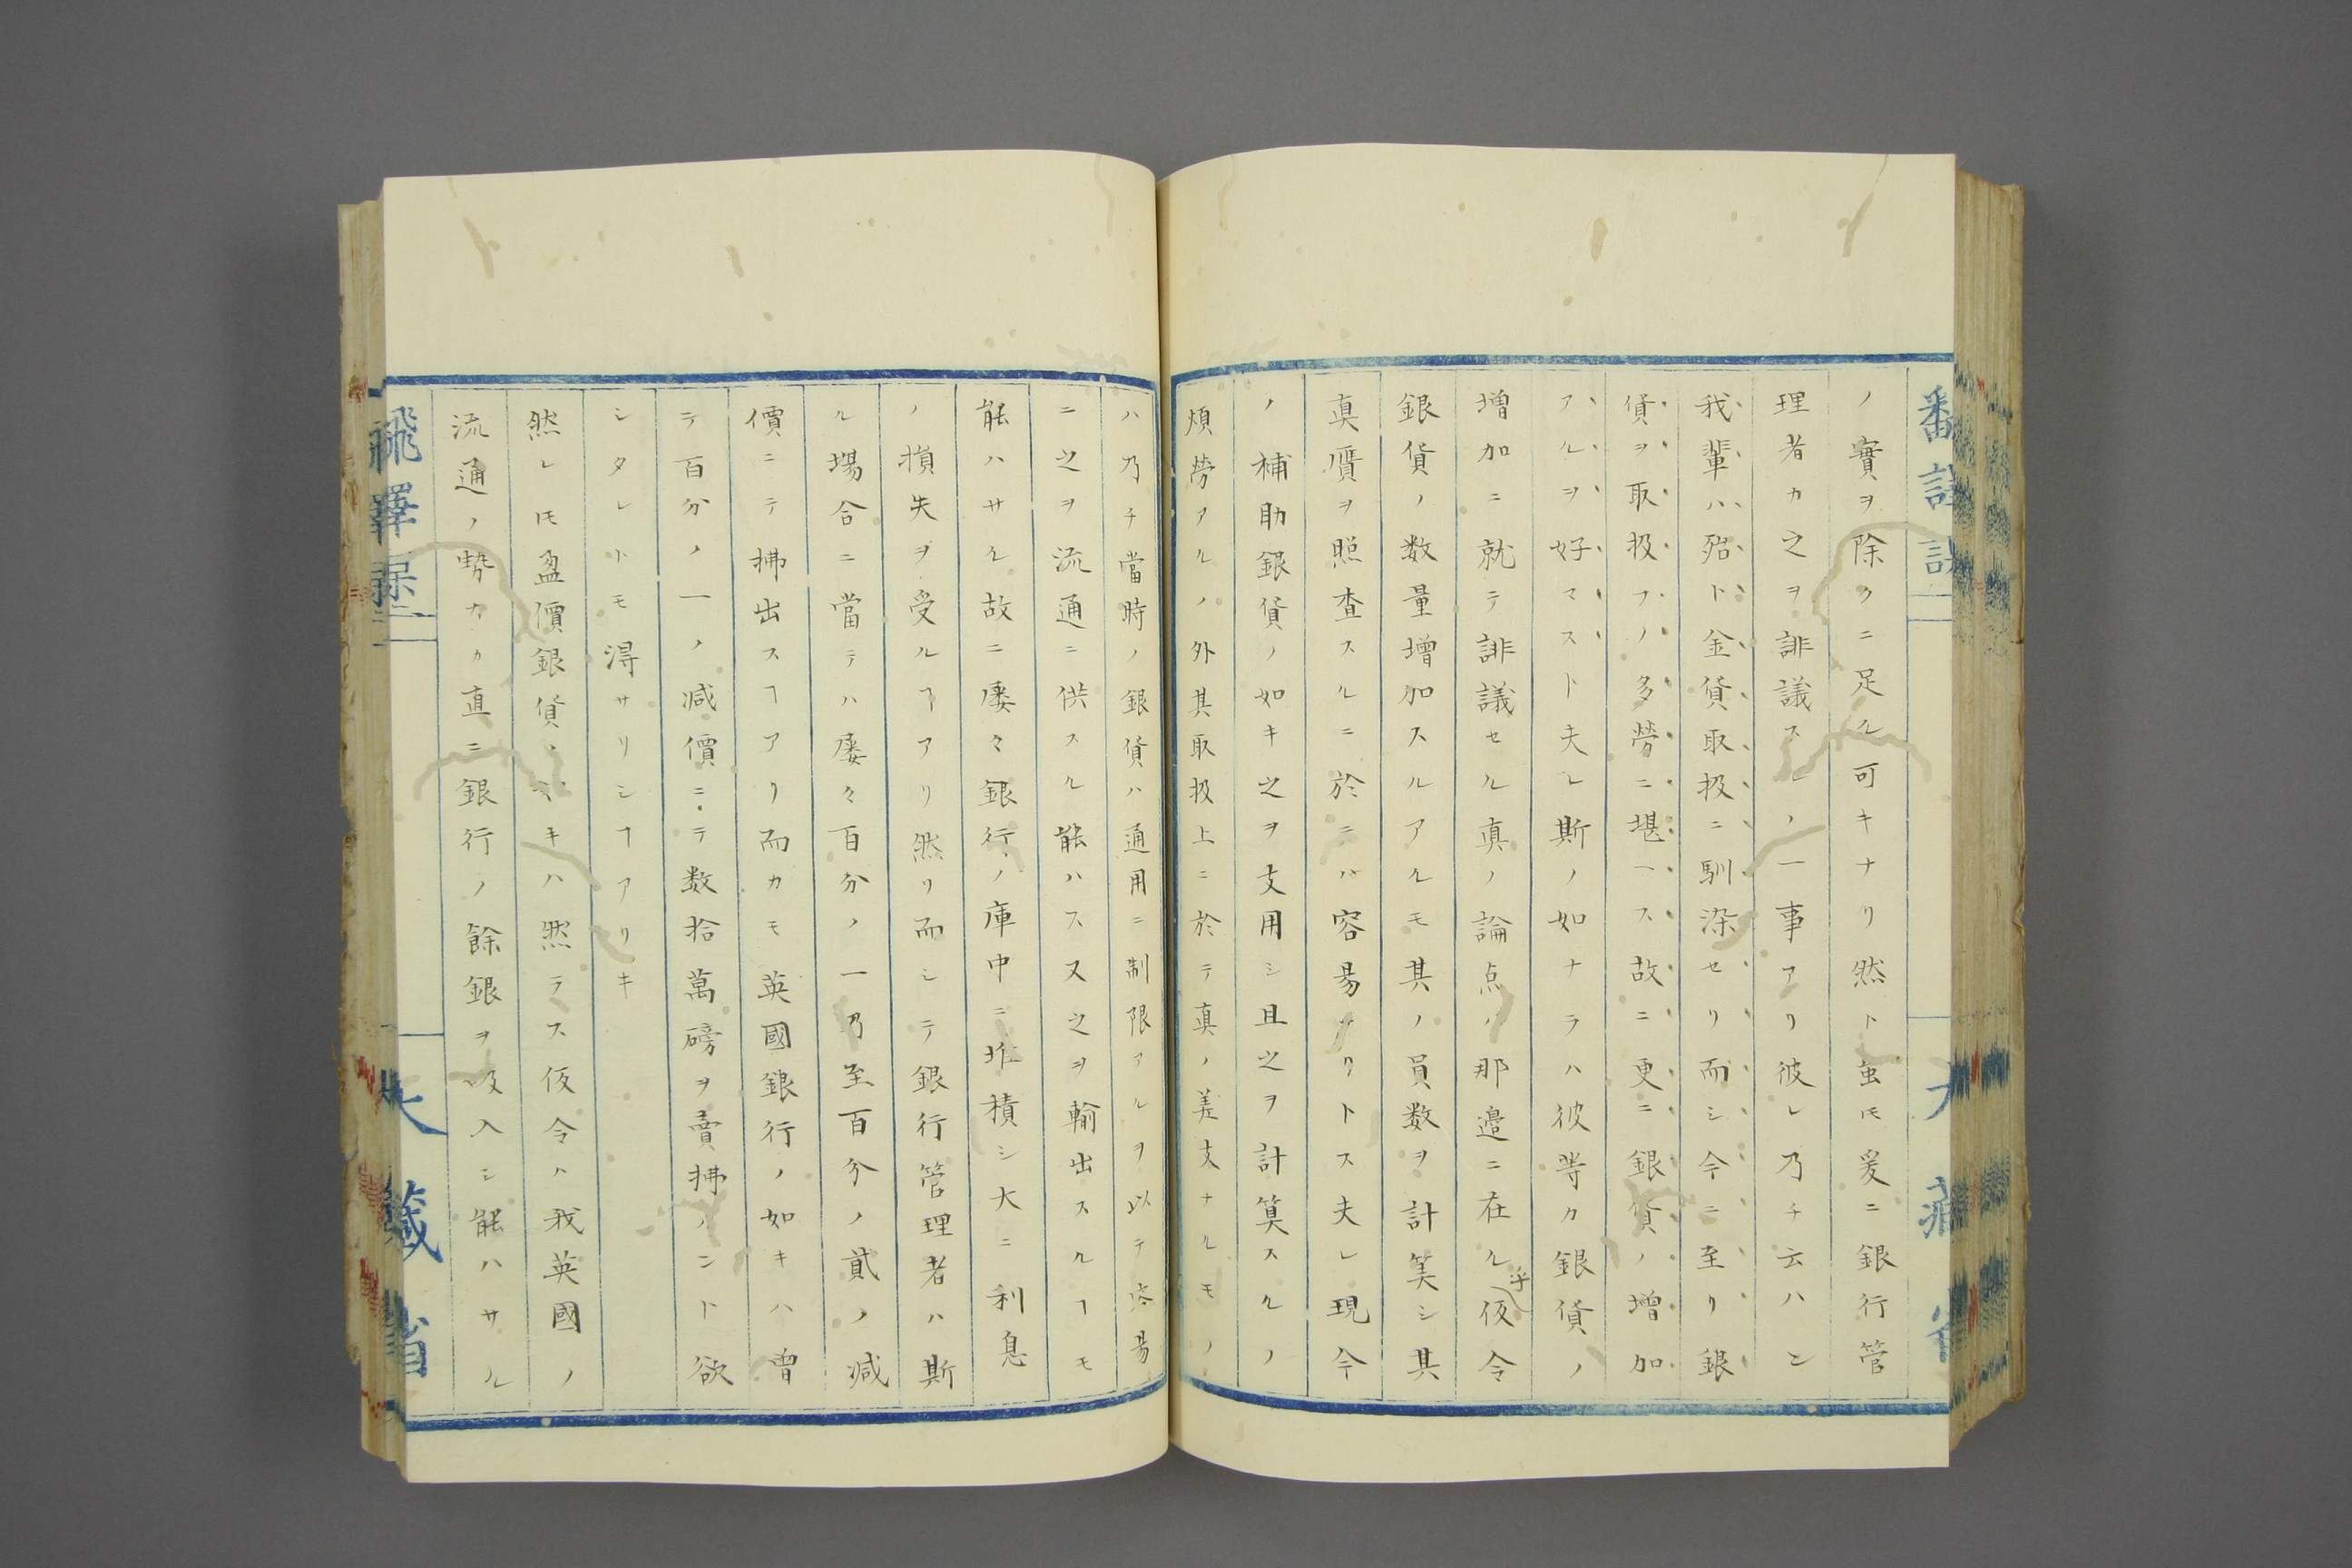 ノ實ヲ除クニ足ル可キナリ然ト虽𪜈爰ニ銀行管
理者カ之ヲ誹議スルノ一事アリ彼レ乃チ云ハン
我輩ハ殆ト金貨取扱ニ馴染セリ而シ今ニ至リ銀
貨ヲ取扱フノ多勞ニ堪ヘス故ニ更ニ銀貨ノ増加
アルヲ好マスト夫レ斯ノ如ナラハ彼等カ銀貨ノ
増加ニ就テ誹議セル真ノ論点ハ那邉ニ在ル乎仮令
銀貨ノ数量増加スルアルモ其ノ員数ヲ計筭シ其
真贋ヲ照査スルニ於ニハ容昜ナリトス夫レ現今
ノ補助銀貨ノ如キ之ヲ支用シ且之ヲ計算スルノ
煩勞アルノ外其取扱上ニ於テ真ノ差支ナルモノ
ハ乃チ當時ノ銀貨ハ通用ニ制限アルヲ以テ容昜
ニ之ヲ流通ニ供スル能ハス又之ヲ輸出スルヿモ
能ハサル故ニ屡々銀行ノ庫中ニ堆積シ大ニ利息
ノ損失ヲ受ルヿアリ然リ而シテ銀行管理者ハ斯
ル場合ニ當テハ屡々百分ノ一乃至百分ノ貳ノ減
價ニテ拂出スヿアリ而カモ英國銀行ノ如キハ曽
テ百分ノ一ノ減價ニテ数拾萬磅ヲ賣拂ハント欲
シタレトモ得サリシヿアリキ
然レ𪜈盈價銀貨ノ如キハ然ラス仮令ハ我英國ノ
流通ノ勢力カ直ニ銀行ノ餘銀ヲ吸入シ能ハサル
大藏省